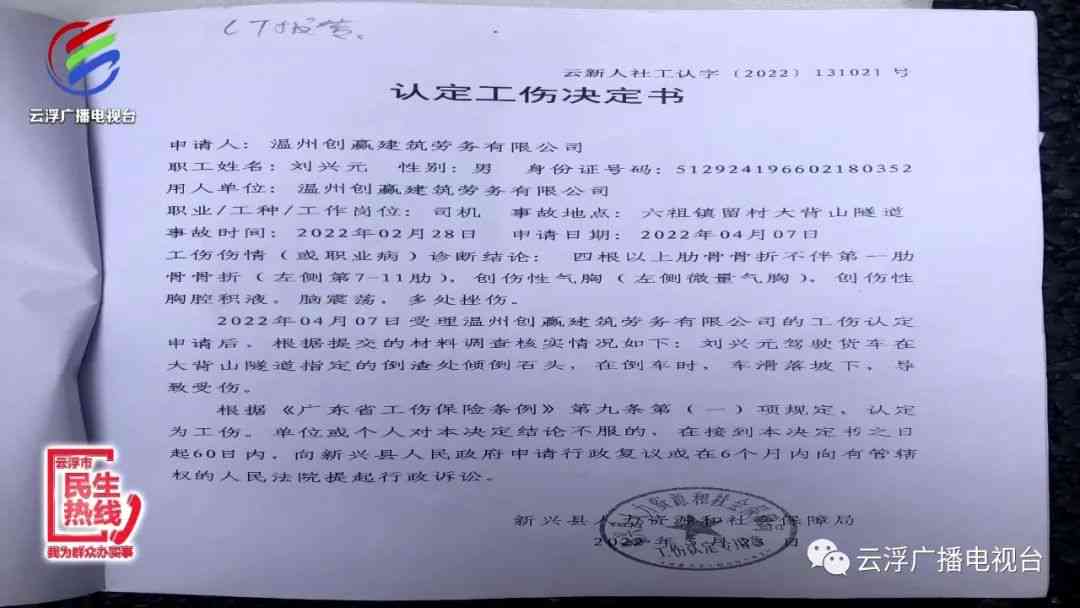 CT报告
云浮广播电视台
云新人社工认字（2022）131021号
认定工伤决定书
申请人：温州创赢建筑劳务有限公司
职工姓名：刘兴元 性别：男 身份证号码：512924196602180352
用人单位：温州创赢建筑劳务有限公司
职业/工种/工作岗位：司机 事故地点：六祖镇留村大背山隧道
事故时间：2022年02月28日 申请日期：2022年04月07日
工伤伤情（或职业病）诊断结论：四根以上肋骨骨折不伴第一肋
骨骨折（左侧第7-11肋），创伤性气胸（左侧微量气胸），创伤性
胸腔积液。脑震荡，多处挫伤。
2022年04月07日受理温州创赢建筑劳务有限公司的工伤认定
申请后，根据提交的材料调查核实情况如下：刘兴元驾驶货车在
大背山隧道指定的倒渣处倾倒石头，在倒车时，车滑落坡下，导
致受伤。
根据《广东省工伤保险条例》第九条第（一）项规定，认定
为工伤。单位或个人对本决定结论不服的，在接到本决定书之日
起60日内，向新兴县人民政府申请行政复议或在6个月内向有管辖
权的人民法院提起行政诉讼。
新兴县人力资源和社会保障局
2022年 月 日
工伤认定专用章
云浮市
民生
热线
我为群众办实事
云浮广播电视台